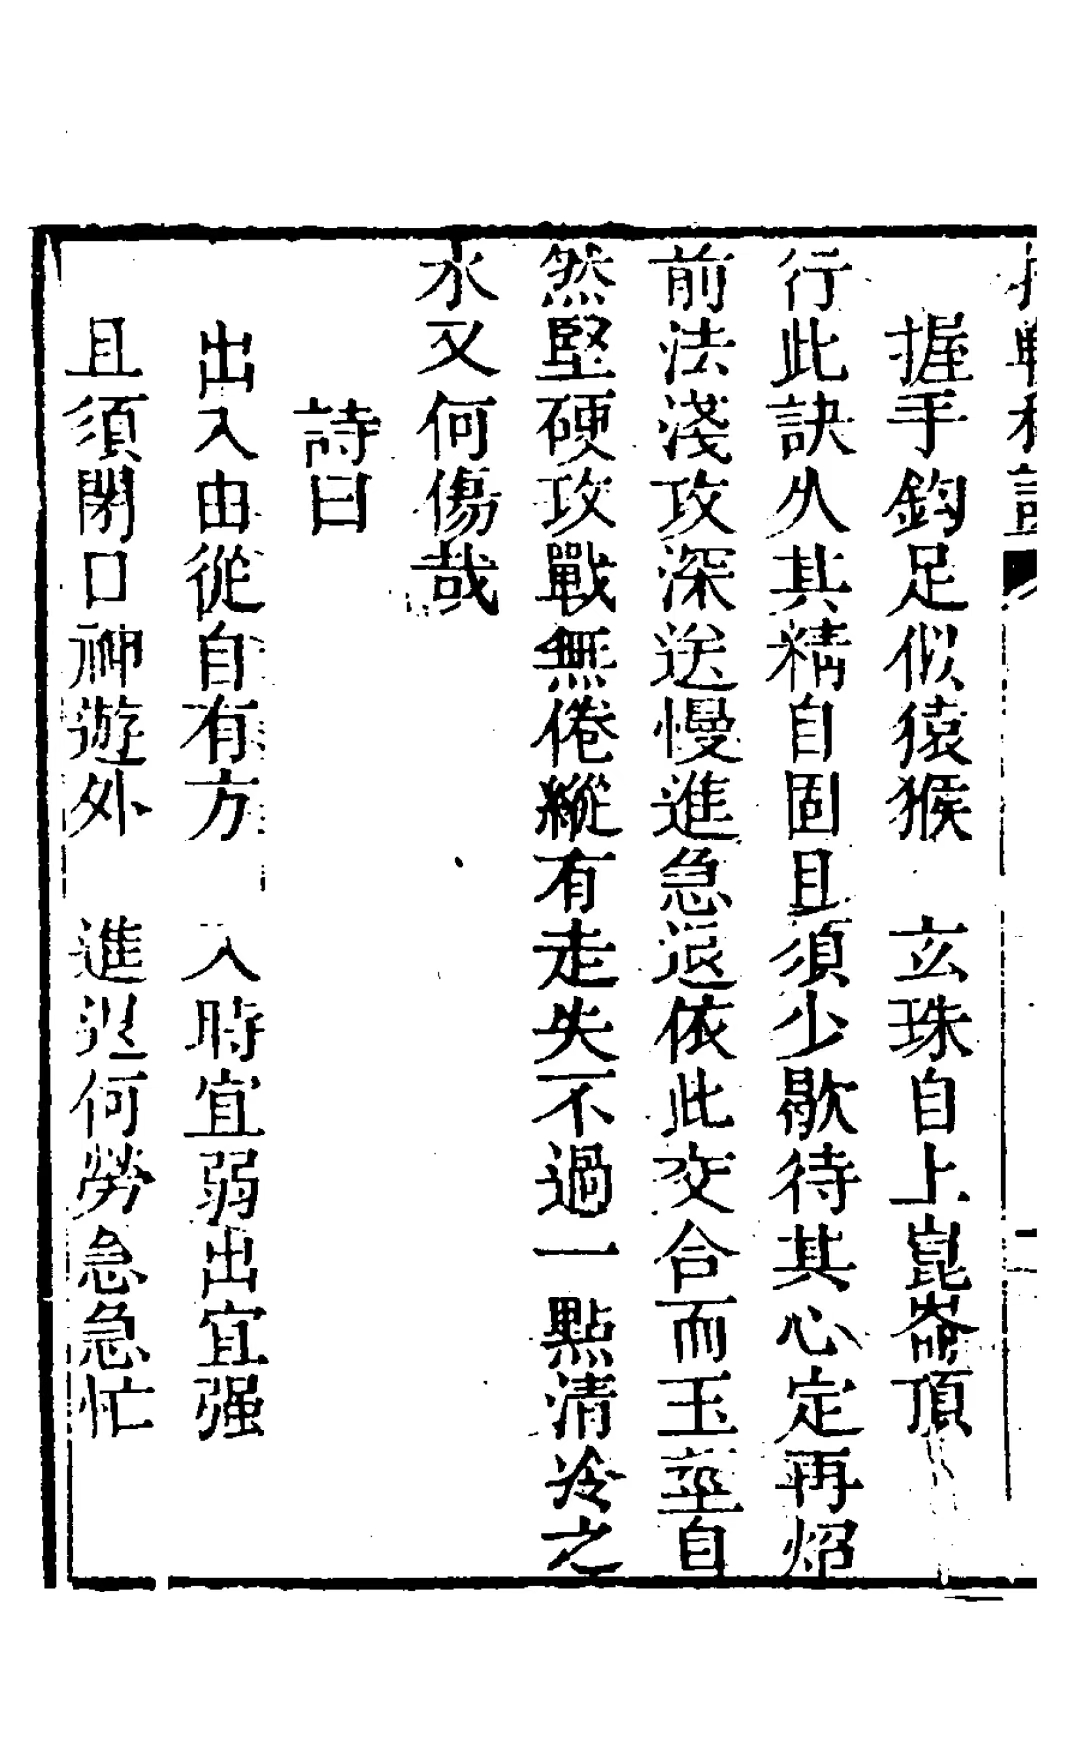 握手鈎足似猿猴　玄珠自上崑崙頂
行此訣久其精自固且須少歇待其心定再炤
前法淺攻深送慢進急退依此交合而玉莖自
然堅硬攻戰無倦縱有走失不過一點清冷之
水又何傷哉
詩曰
出入由從自有方　入時宜弱出宜强
且須閉口神遊外　進退何勞急急忙